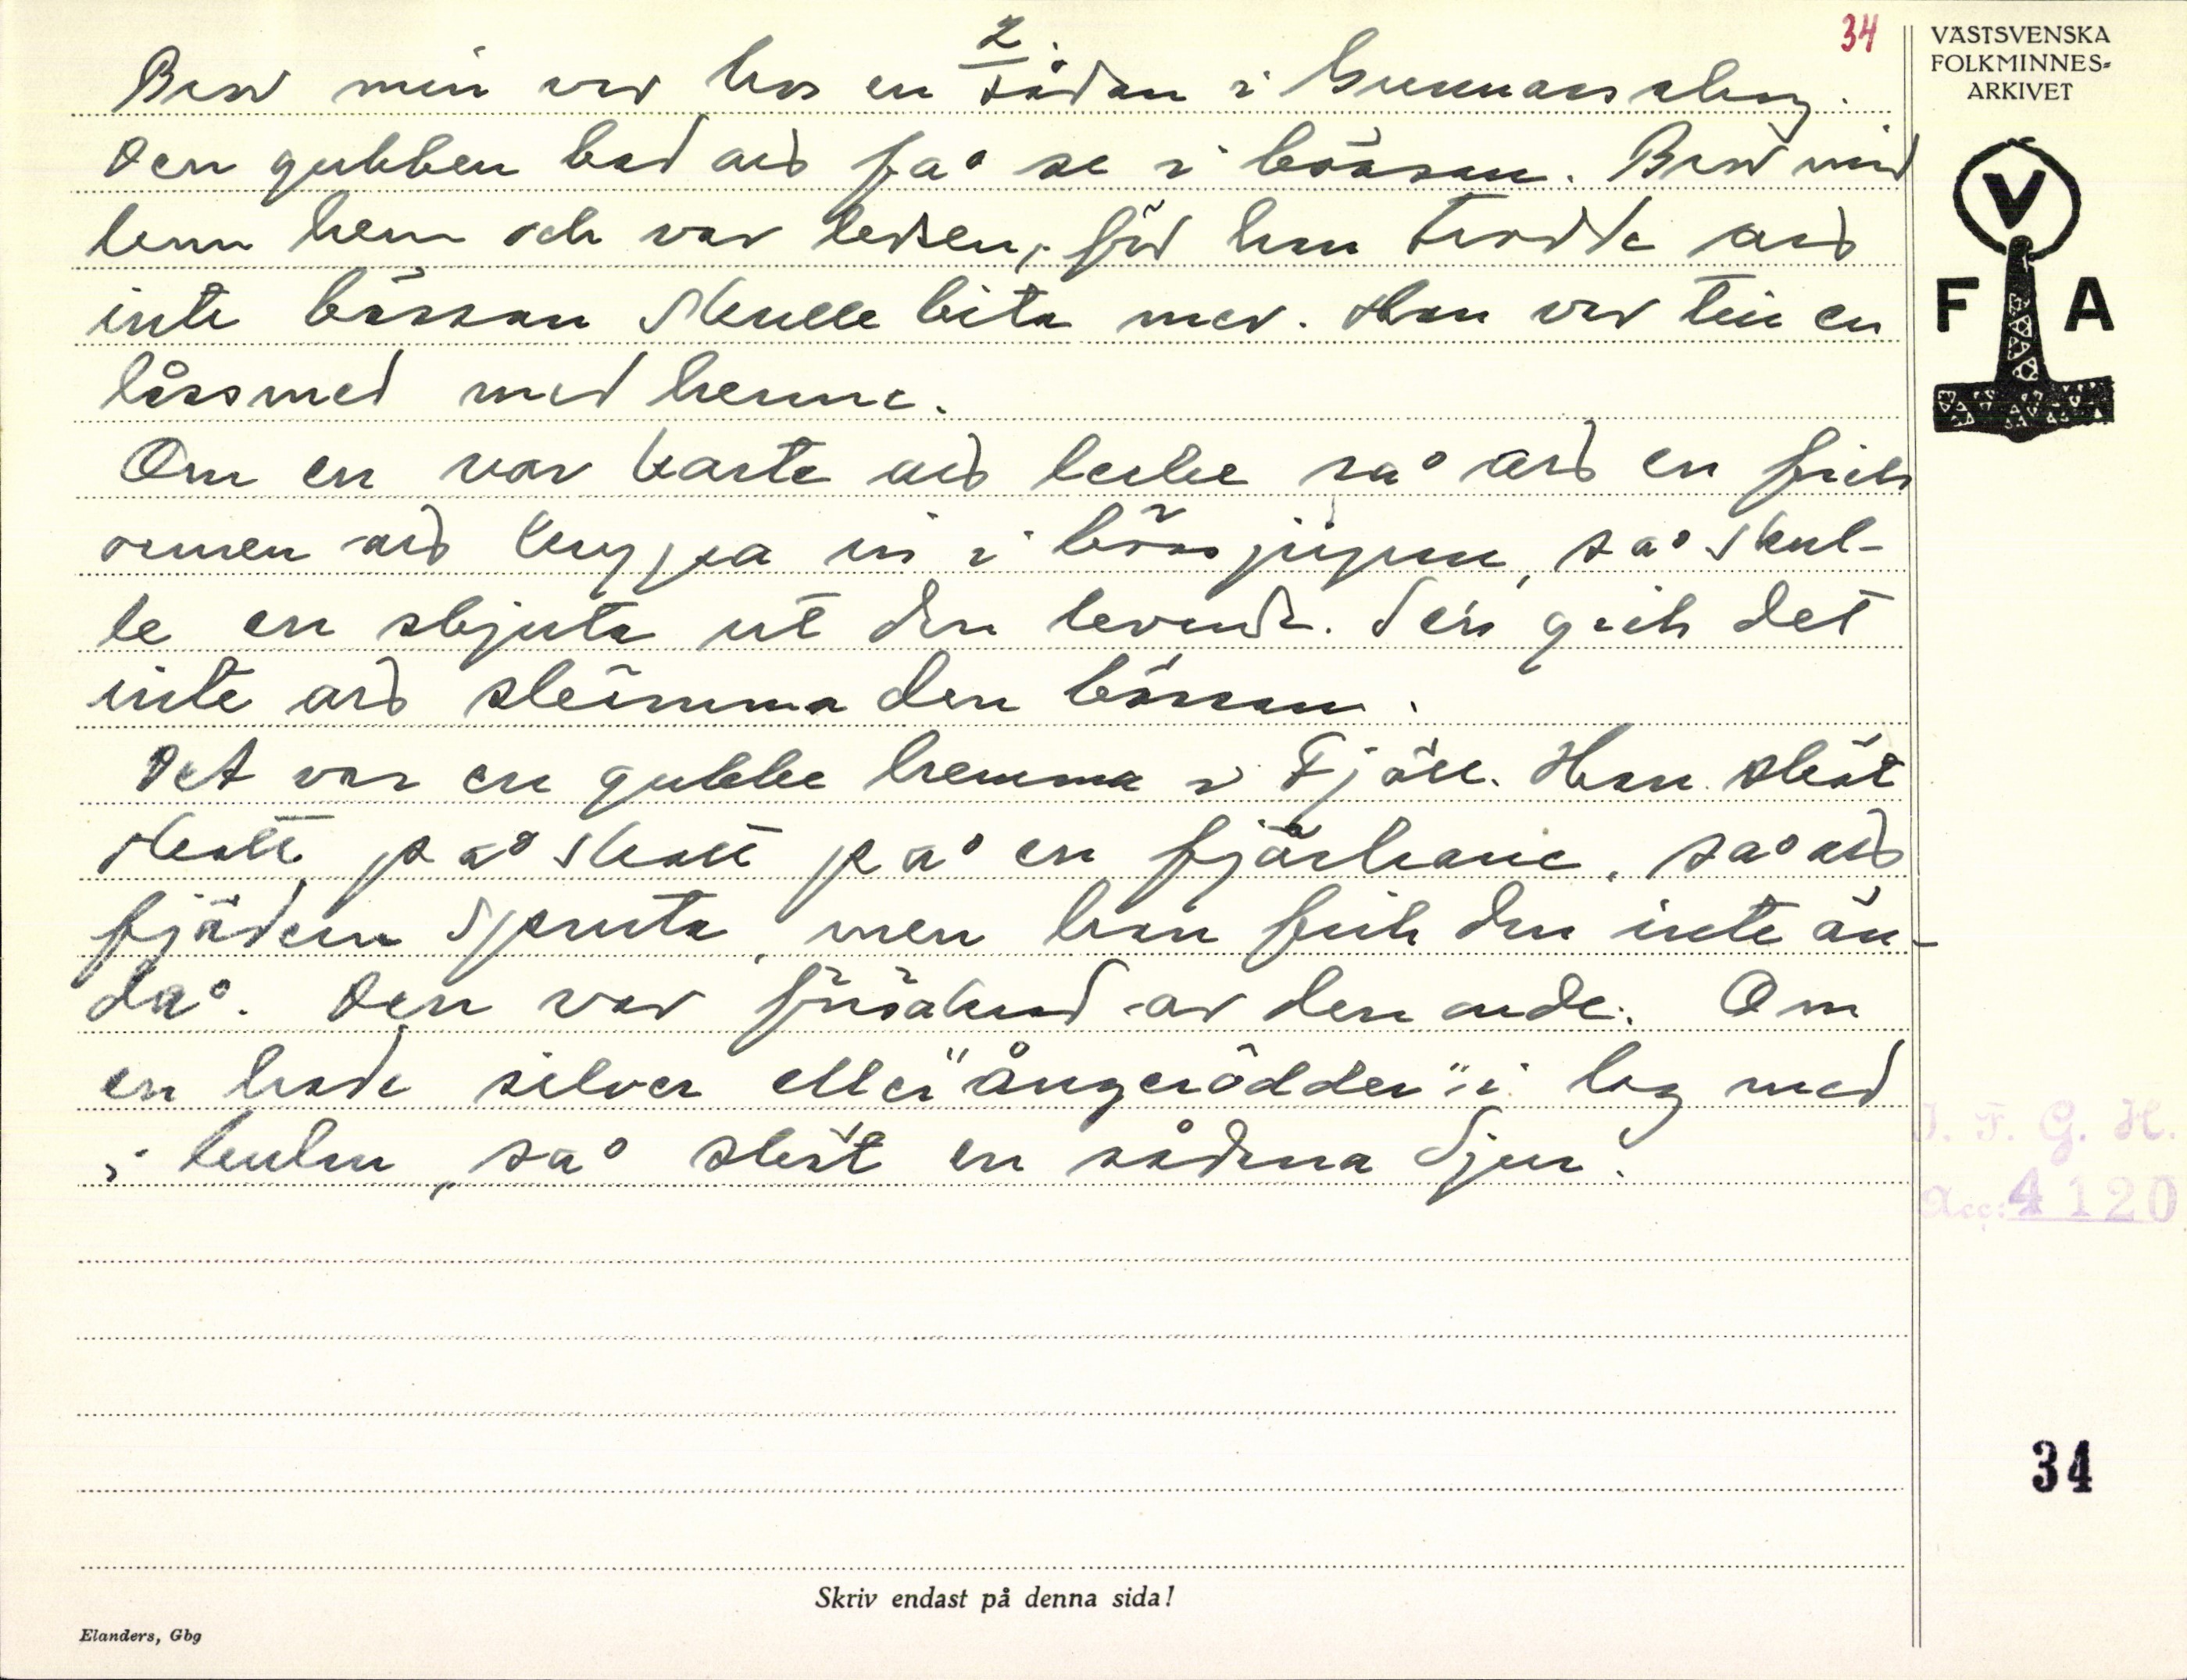 2
34
Bror min var hos en sådan i Gunnarsskog.
Den gubben bad att få se i bössan. Bror min
kom hem och var ledsen, för han trodde att
inte bössan skulle bita mer. Han var till en
låssmed med henne.
Om en var karte att locke så att en fick
ormen att krypa in i bösspipan, så skul-
le en skjuta ut den levande. Sen gick det
inte att skämma den bössan.
Det var en gubbe hemma i Fjöll. Han sköt
skott på skott på en fjärhane, så att
fjädern spruta, men han fick den inte än-
då. Den var försäkrad av den onde. Om
en hade silver eller "ångerödder" i lag med
i kulan, så sköt en sådana djur.
VÄSTSVENSKA
FOLKMINNES-
ARKIVET
V
F A
I. F. G. H.
Acc: 4120
34
Skriv endast på denna sida!
Elanders, Gbg